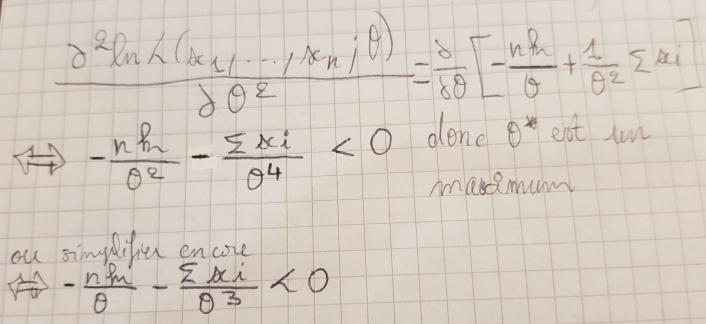 ∂² ln L(x₁, ..., xₙ; θ) / ∂θ² = ∂/∂θ [ - nk/θ + 1/θ² Σ xi ]
⇔ - nk/θ² - Σ xi/θ⁴ < 0 donc θ* est un
maximum
ou simplifier encore
⇔ - nk/θ - Σ xi/θ³ < 0